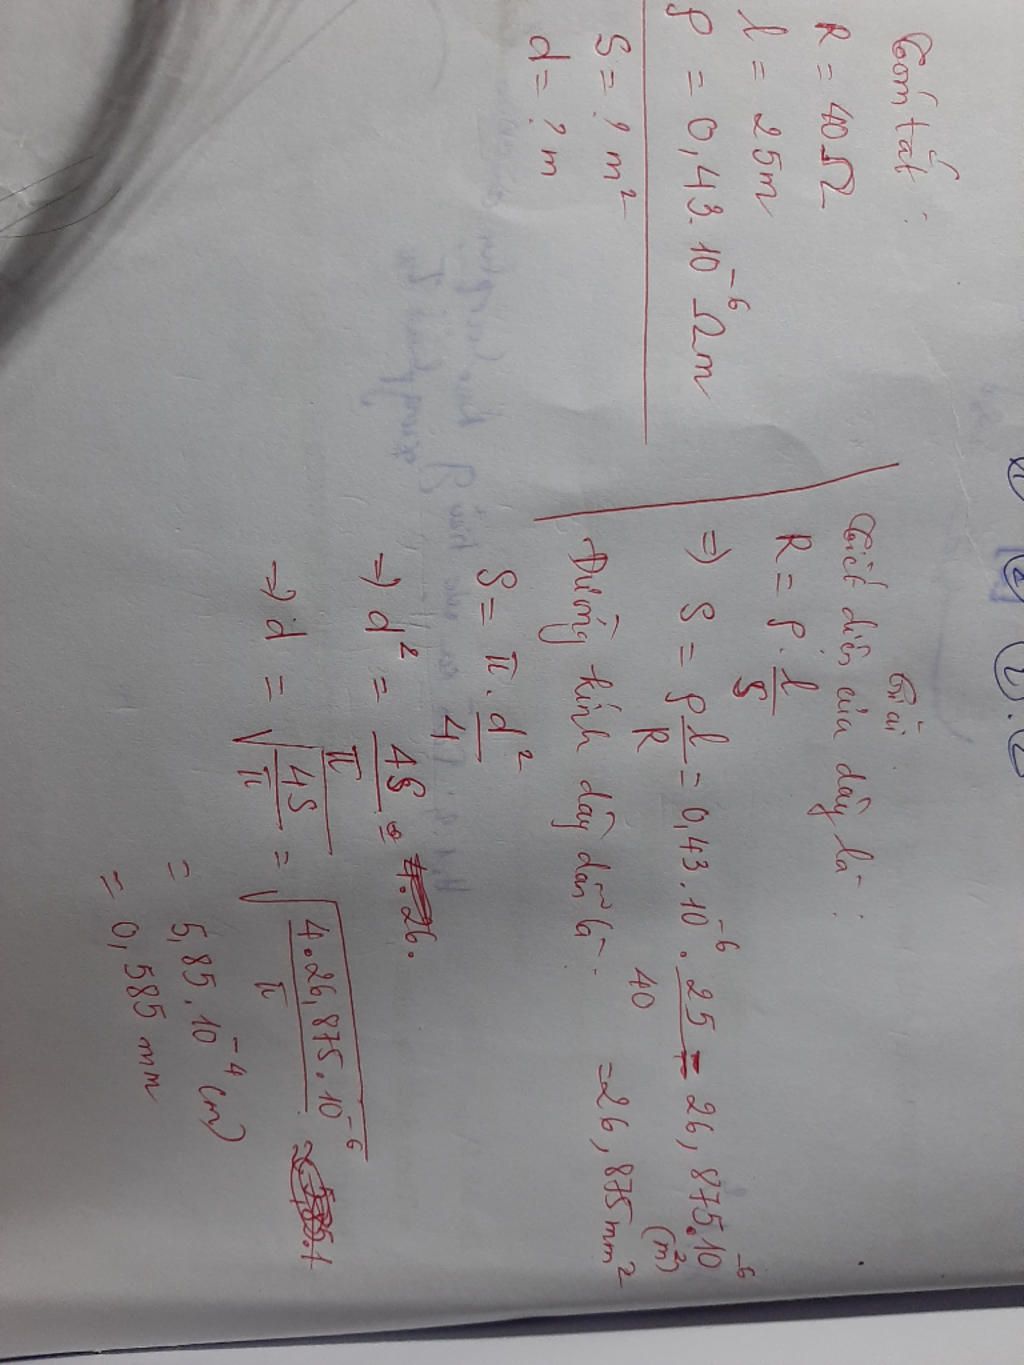 Tóm tắt:
R = 40Ω
l = 25m
ρ = 0,43.10⁻⁶ Ωm
S = ? m²
d = ? m
Giải
Tiết diện của dây là:
R = ρ . l/S
=> S = ρ l/R = 0,43.10⁻⁶ . 25/40 = 26,875.10⁻⁶ (m²)
= 26,875 mm²
Đường kính dây dẫn là:
S = π . d²/4
=> d² = 4S/π =
=> d = √(4S/π) = √(4.26,875.10⁻⁶/π)
= 5,85.10⁻⁴ (m)
= 0,585 mm